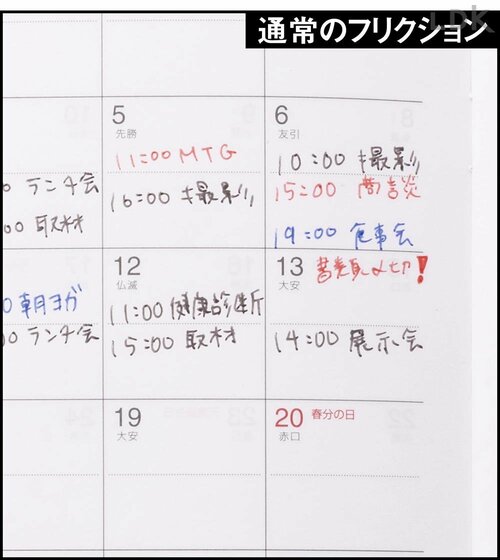 LDK
通常のフリクション
5
先勝
11:00 MTG
16:00 撮影
6
友引
10:00 撮影
15:00 商談
19:00 食事会
0 ランチ会
00 取材
12
仏滅
11:00 健康診断
15:00 取材
13
大安
書類〆切!
14:00 展示会
0 朝ヨガ
00 ランチ会
19
大安
20 春分の日
赤口